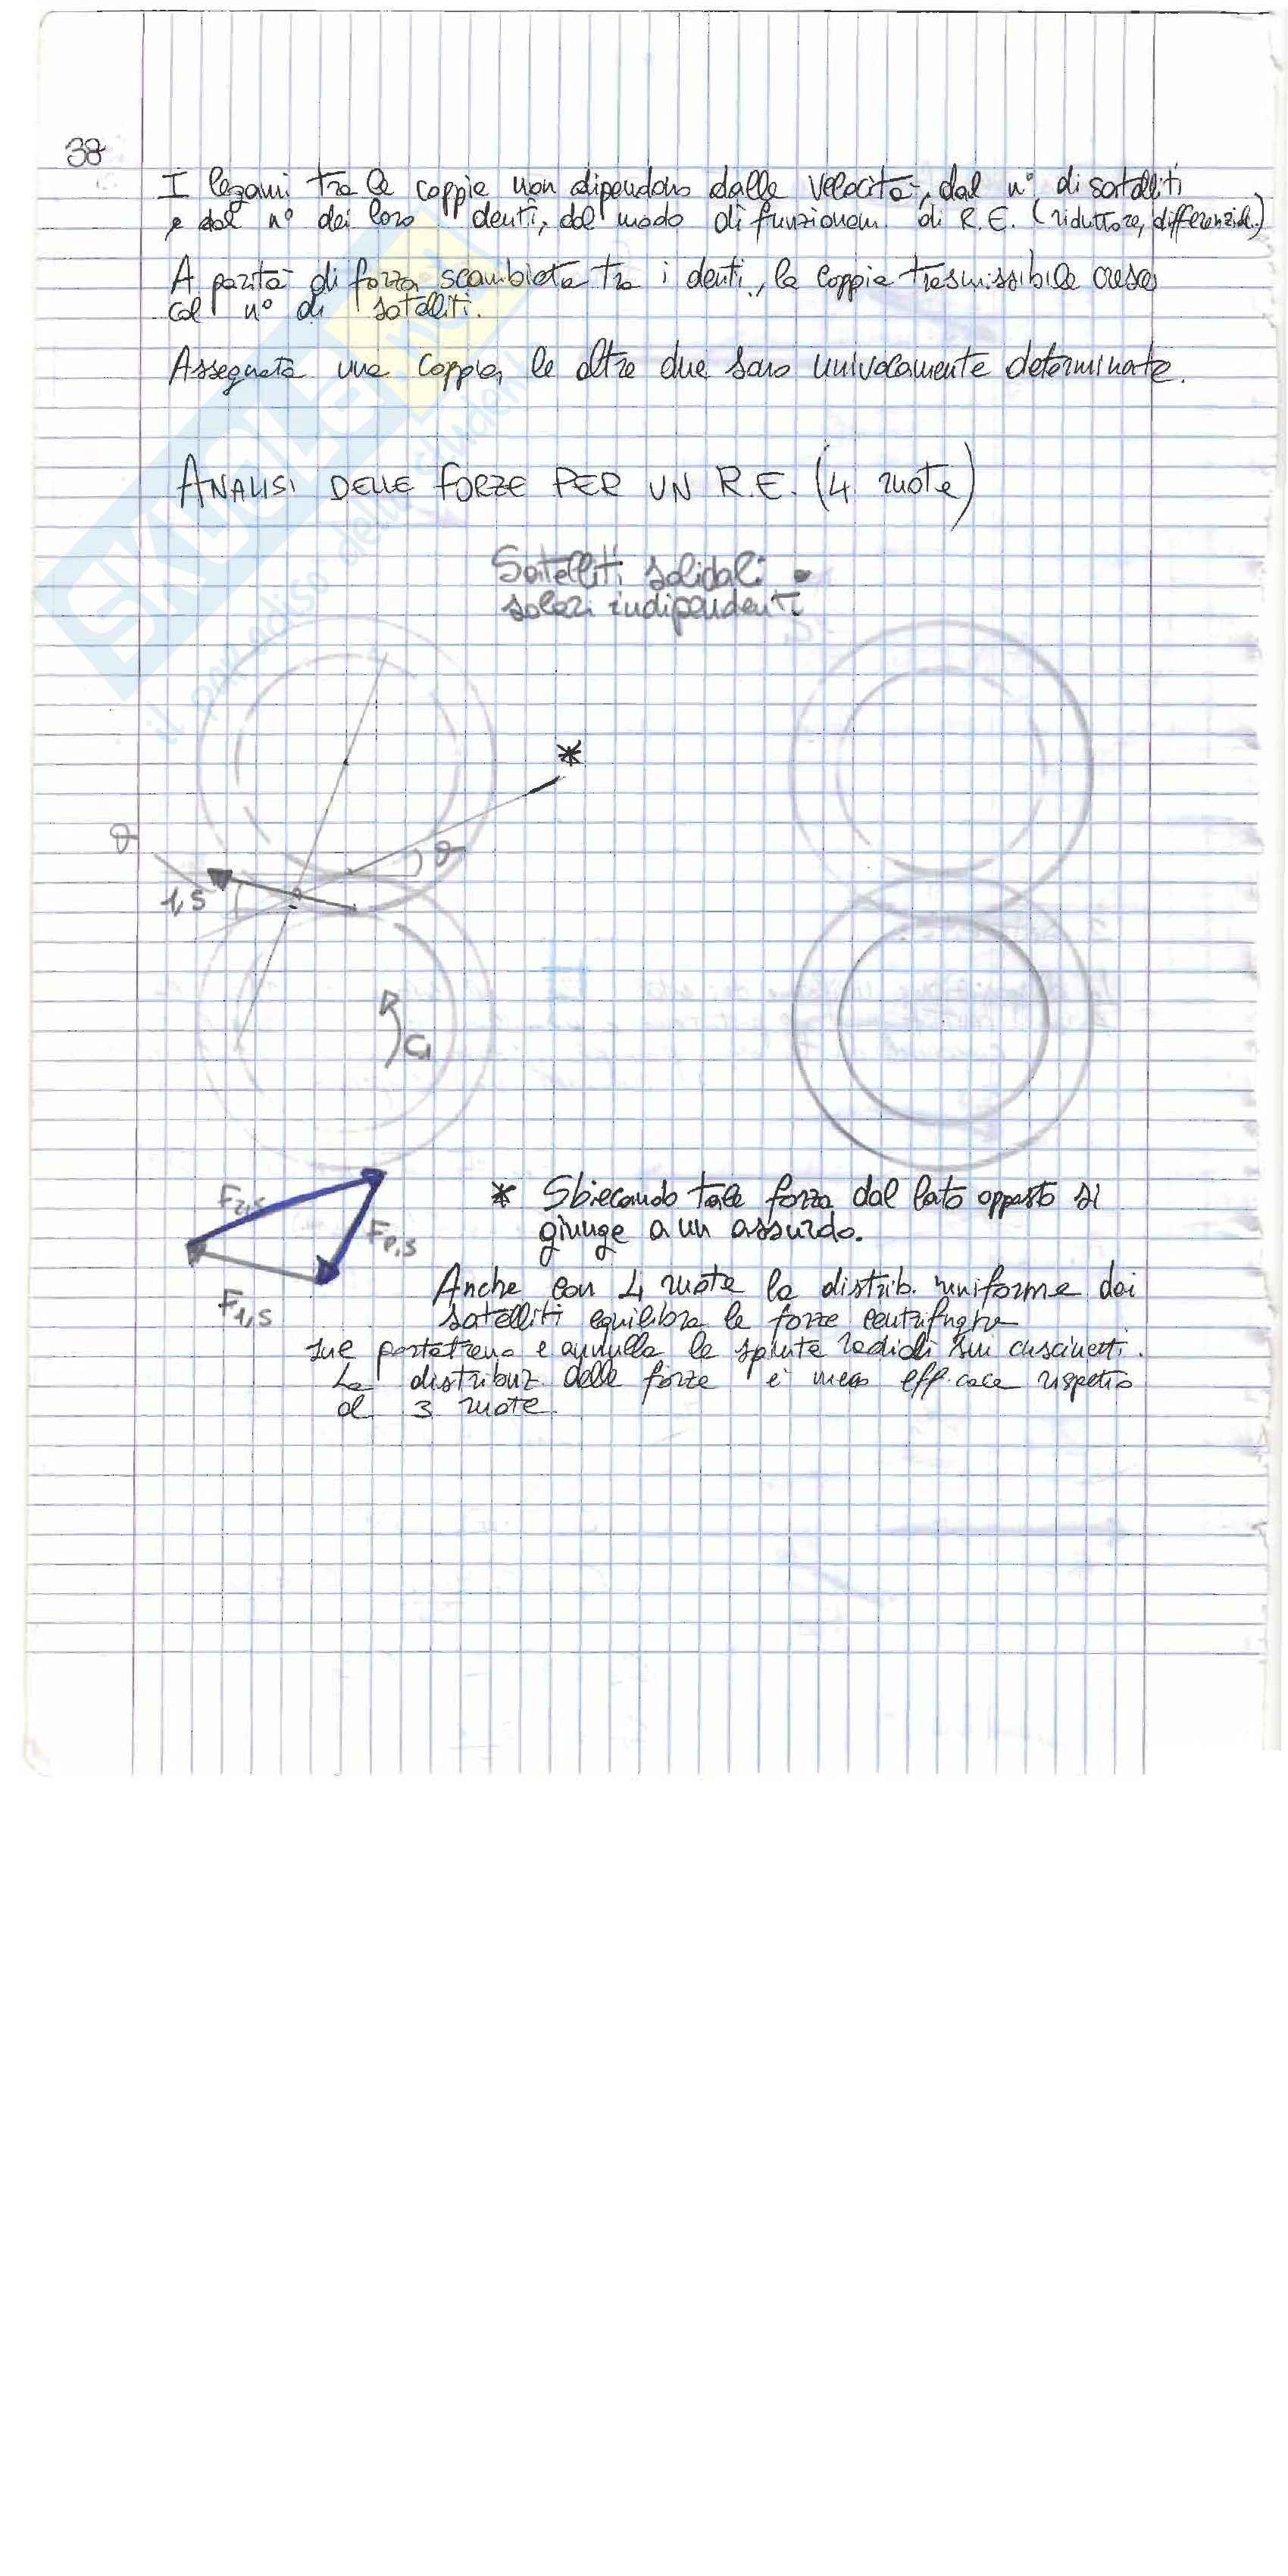 38
I legami tra le coppie non dipendono dalle velocità, dal n° di satelliti
e dal n° dei loro denti, dal modo di funzionam. di R.E. (riduttore, differenzial.)
A parità di forza scambiata tra i denti, la coppia trasmissibile cresce
col n° di satelliti.
Assegnata una coppia, le altre due sono univocamente determinate.
ANALISI DELLE FORZE PER UN R.E. (4 ruote)
Satelliti solidali
solari indipendenti
*
θ
θ
1,S
C1
F2,S
Fp,S
F1,S
* Sbiecando tale forza dal lato opposto si
giunge a un assurdo.
Anche con 4 ruote la distrib. uniforme dei
satelliti equilibra le forze centrifughe
sul portatreno e annulla le spinte radiali sui cuscinetti.
La distribuz. delle forze è meno efficace rispetto
al 3 ruote.
SKUOLA.net
il paradiso dello studente